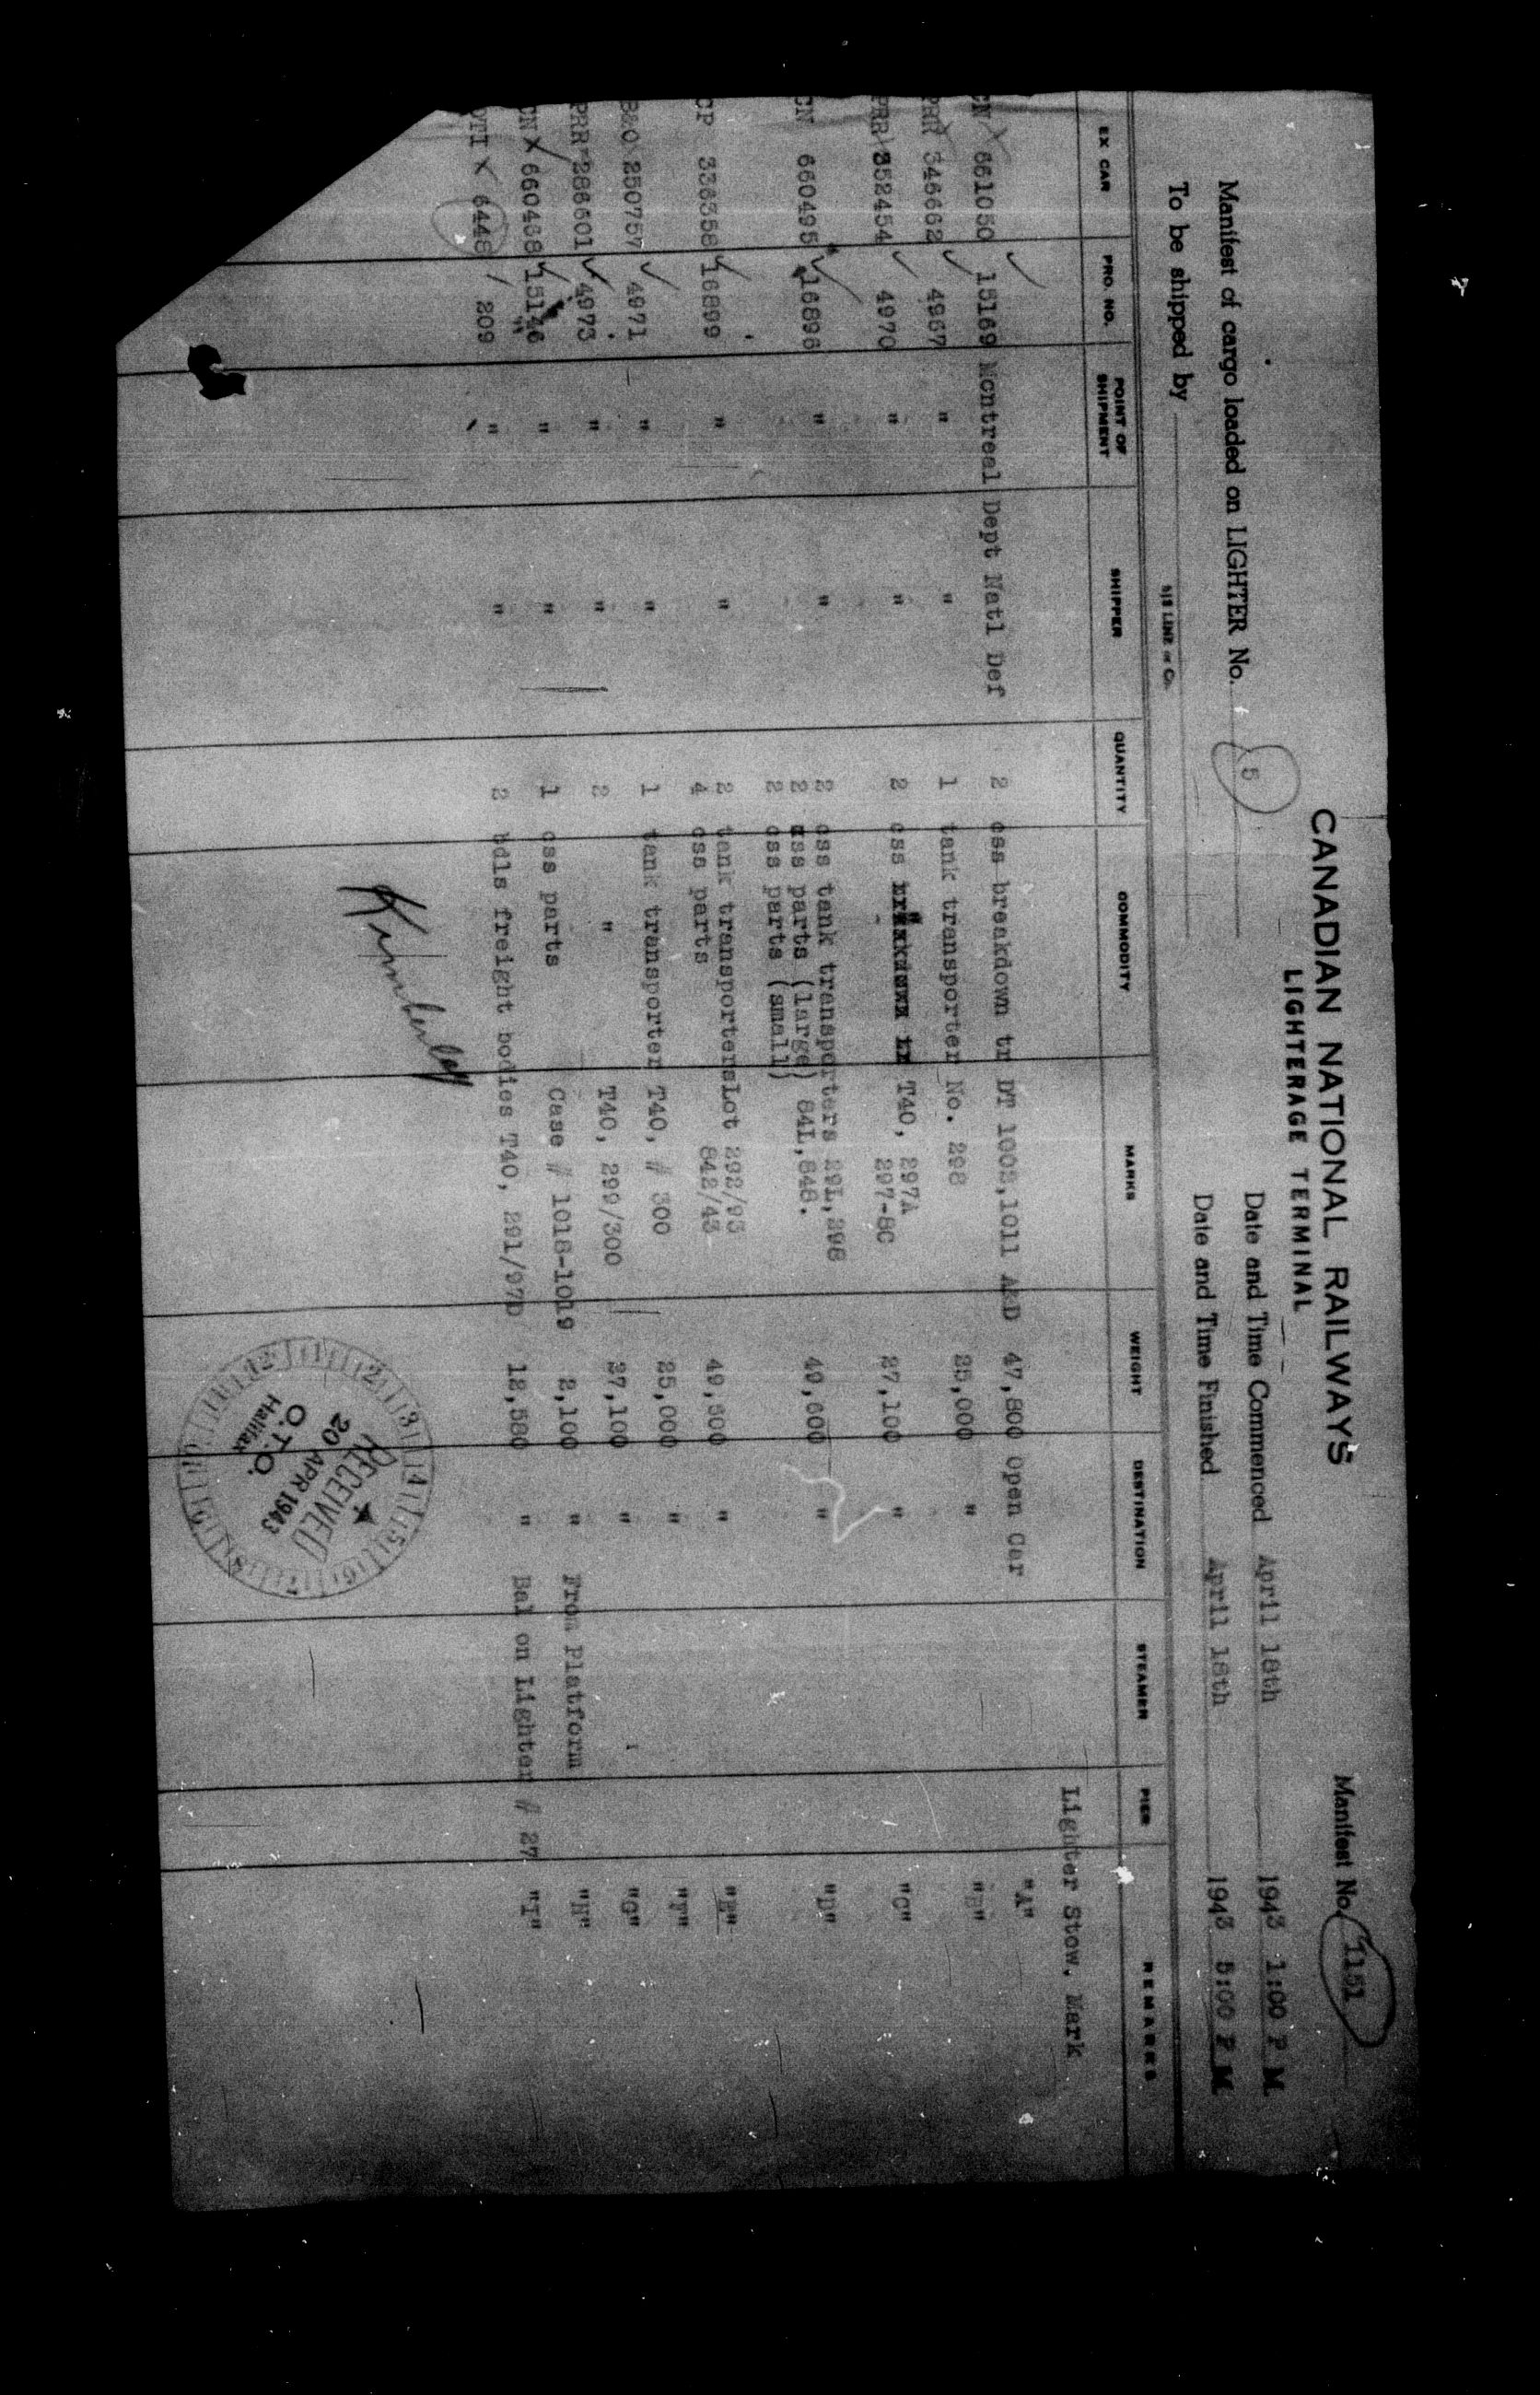 CANADIAN NATIONAL RAILWAYS
LIGHTERAGE TERMINAL
Manifest No. 1151
Manifest of cargo loaded on LIGHTER No. 5 Date and Time Commenced April 18th 1943 1:00 P M
To be shipped by Date and Time Finished April 18th 1943 5:00 P M
S/S LINE or Co.
EX CAR PRO. NO. POINT OF SHIPMENT SHIPPER QUANTITY COMMODITY MARKS WEIGHT DESTINATION STEAMER PIER REMARKS
Lighter Stow. Mark
CN 661050 15169 Montreal Dept Natl Def 2 css breakdown tr DT 1002,1011 A&D 47,800 Open Car "A"
PRR 346662 4967 " " 1 tank transporter No. 298 25,000 " "B"
PRR 352454 4970 " " 2 css " T40, 297A 27,100 " "C"
297-8C
CN 660495 16896 " " 2 css tank transporters 29L,298 49,600 " "D"
2 css parts (large) 84L,848.
2 css parts (small)
CP 336358 16899 " " 2 tank transportersLot 292/93 49,600 " "E"
4 css parts 842/43
B&O 250757 4971 " " 1 tank transporter T40, # 300 25,000 " "F"
PRR 286601 4973 " " 2 " T40, 299/300 27,100 " "G"
CN 660468 15146 " " 1 css parts Case # 1018-1019 2,100 " From Platform "H"
6448 209 " " 2 bdls freight bodies T40, 291/97D 12,580 " Bal on Lighter # 27 "I"
Kimberley
RECEIVED
20 APR 1943
O.T.O.
Halifax